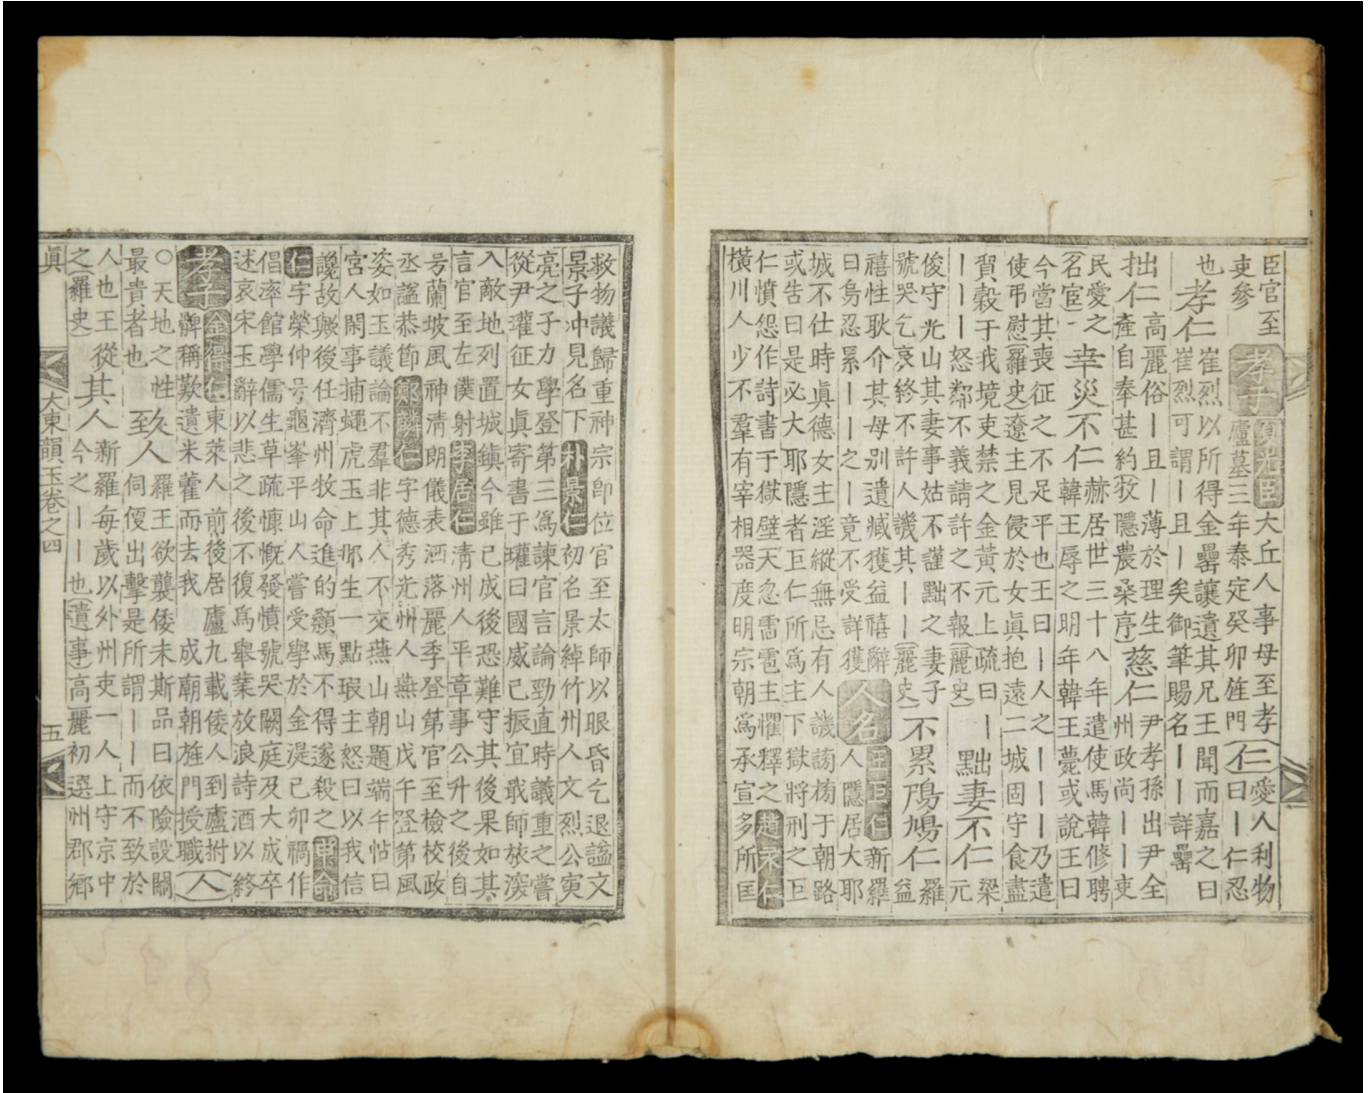 臣官至
吏參
孝子 夏光臣 大丘人事母至孝
廬墓三年泰定癸卯旌門
仁 愛人利物
曰丨仁忍
也 孝仁 崔烈以所得金罍讓遺其兄王聞而嘉之曰
崔烈可謂丨且丨矣御筆賜名丨丨詳罍
拙仁 高麗俗丨且丨薄於理生
產自奉甚約牧隱農桑序
慈仁 尹孝孫出尹全
州政尚丨丨吏
民愛之
名宦
幸災不仁 赫居世三十八年遣使馬韓修聘
韓王辱之明年韓王薨或說王曰
今當其喪征之不足平也王曰丨人之丨丨丨丨乃遣
使弔慰 羅史 遼主見侵於女眞抱遠二城固守食盡
貿穀于我境吏禁之金黃元上疏曰丨
丨丨丨怒鄰不義請許之不報 麗史
黜妻不仁 梁
元
俊守光山其妻事姑不謹黜之妻子
號哭乞哀終不許人譏其丨丨 麗史
不累鳲鳩仁 羅
益
禧性耿介其母別遺臧獲益禧辭
曰烏忍累丨丨之丨竟不受詳獲
人名 王巨仁 新羅
人隱居大耶
城不仕時眞德女主淫縱無忌有人譏謗榜于朝路
或告曰是必大耶隱者巨仁所爲主下獄將刑之巨
仁憤怨作詩書于獄壁天忽雷雹主懼釋之 趙永仁
橫川人少不羣有宰相器度明宗朝爲承宣多所匡
救物議歸重神宗卽位官至太師以眼昏乞退謚文
景子冲見名下 朴景仁 初名景綽竹州人文烈公寅
亮之子力學登第三爲諫官言論勁直時議重之嘗
從尹瓘征女眞寄書于瓘曰國威已振宜戢師旅深
入敵地列置城鎮今雖已成後恐難守其後果如其
言官至左僕射 李居仁 淸州人平章事公升之後自
号蘭坡風神淸朗儀表洒落麗季登第官至檢校政
丞謚恭節 鄭麟仁 字德秀光州人燕山戊午登第風
姿如玉議論不羣非其人不交燕山朝題端午帖曰
宮人閑事捕蠅虎玉上那生一點瑕主怒曰以我信
讒故歟後任濟州牧命進的顙馬不得遂殺之
仁 字榮仲号龜峯平山人嘗受學於金湜己卯禍作
倡率館學儒生草疏慷慨發憤號哭闕庭及大成卒
述哀宋玉辭以悲之後不復爲擧業放浪詩酒以終
孝子 金得仁 東萊人前後居廬九載倭人到廬拊
牌稱歎遺米藿而去我 成廟朝旌門授職
人
○天地之性
最貴者也
至人 羅王欲襲倭未斯品曰依險設關
伺便出擊是所謂丨丨而不致於
人也王從
之 羅史
其人 新羅每歲以外州吏一人上守京中
今之丨丨也 遺事 高麗初選州郡鄉
眞 大東韻玉卷之四 五